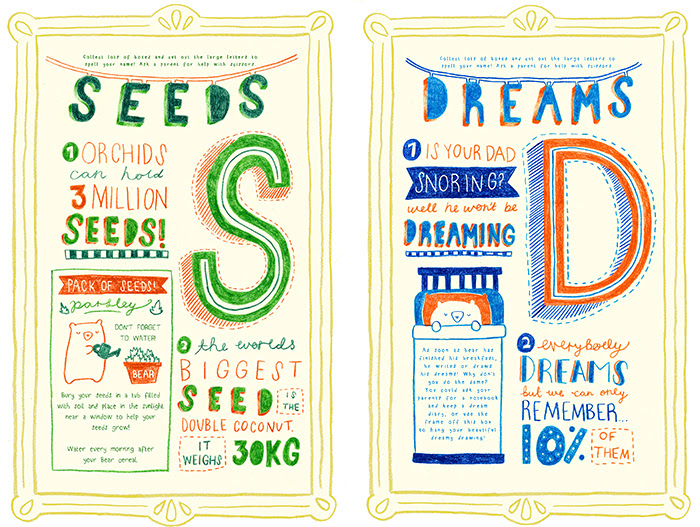 Collect lots of boxes and cut out the large letters to
spell your name! Ask a parent for help with scissors.
SEEDS
1 ORCHIDS
can hold
3 MILLION
SEEDS!
S
PACK OF SEEDS!
parsley
DON'T FORGET
TO WATER!
BEAR
Bury your seeds in a tub filled
with soil and place in the sunlight
near a window to help your
seeds grow!
Water every morning after
your Bear cereal.
2 the worlds
BIGGEST
SEED IS THE
DOUBLE COCONUT.
IT WEIGHS 30KG
Collect lots of boxes and cut out the large letters to
spell your name! Ask a parent for help with scissors.
DREAMS
1 IS YOUR DAD
SNORING?
well he won't be
DREAMING
D
As soon as bear has
finished his breakfast,
he writes or draws
his dreams! Why don't
you do the same?
You could ask your
parents for a notebook
and keep a dream
diary, or use the
frame off this box
to hang your beautiful
dreamy drawing!
2 everybody
DREAMS
but we can only
REMEMBER...
10% OF THEM